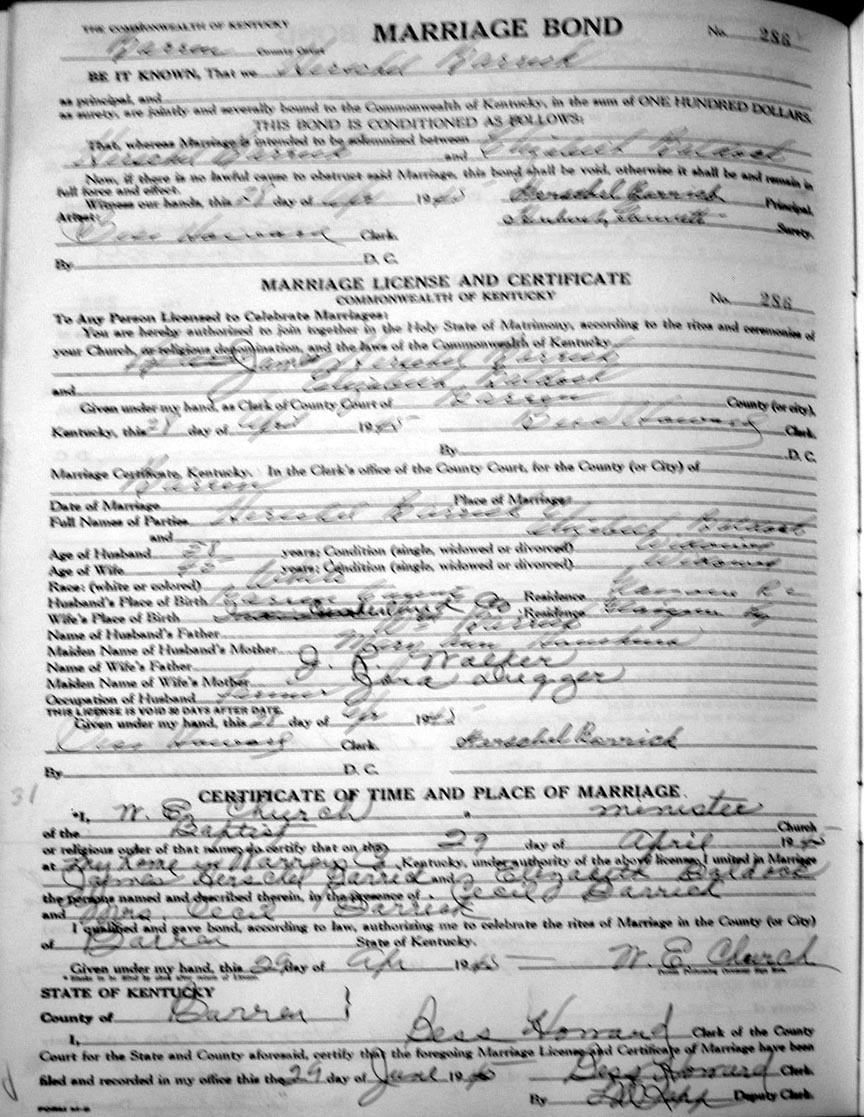 THE COMMONWEALTH OF KENTUCKY
MARRIAGE BOND
No. 286
Barren County Court
BE IT KNOWN, That we Herschel Barrick
as principal, and
as surety, are jointly and severally bound to the Commonwealth of Kentucky, in the sum of ONE HUNDRED DOLLARS.
THIS BOND IS CONDITIONED AS FOLLOWS:
That, whereas Marriage is intended to be solemnized between
Herschel Barrick and Elizabeth Baldock
Now, if there is no lawful cause to obstruct said Marriage, this bond shall be void, otherwise it shall be and remain in
full force and effect.
Witness our hands, this 28 day of Apr 1945 Herschel Barrick Principal.
Attest: Garnett Surety.
Bess Howard Clerk.
By D. C.
MARRIAGE LICENSE AND CERTIFICATE
COMMONWEALTH OF KENTUCKY
No. 286
To Any Person Licensed to Celebrate Marriages:
You are hereby authorized to join together in the Holy State of Matrimony, according to the rites and ceremonies of
your Church, or religious denomination, and the laws of the Commonwealth of Kentucky
James Herschel Barrick
and Elizabeth Baldock
Given under my hand, as Clerk of County Court of Barren County (or city),
Kentucky, this 28 day of Apr 1945 Bess Howard Clerk.
By D. C.
Marriage Certificate, Kentucky. In the Clerk's office of the County Court, for the County (or City) of
Barren
Date of Marriage Place of Marriage
Full Names of Parties Herschel Barrick
and Elizabeth Baldock
Age of Husband 58 years; Condition (single, widowed or divorced) Widowed
Age of Wife years; Condition (single, widowed or divorced) Widowed
Race: (white or colored) White
Husband's Place of Birth Barren County Residence
Wife's Place of Birth Co Residence Glasgow Ky
Name of Husband's Father Barrick
Maiden Name of Husband's Mother Mary Ann
Name of Wife's Father J. R. Walker
Maiden Name of Wife's Mother Dugger
Occupation of Husband Farmer
THIS LICENSE IS VOID 30 DAYS AFTER DATE.
Given under my hand, this 28 day of Apr 1945
Bess Howard Clerk. Herschel Barrick
By D. C.
31
CERTIFICATE OF TIME AND PLACE OF MARRIAGE
"I, W. E. Church a minister
of the Baptist Church
or religious order of that name, do certify that on the 29 day of April 1945
at my home in Warren Co, Kentucky, under authority of the above license, I united in Marriage
James Herschel Barrick and Elizabeth Baldock
the persons named and described therein, in the presence of Cecil Barrick
and Mrs. Cecil Barrick
I qualified and gave bond, according to law, authorizing me to celebrate the rites of Marriage in the County (or City)
of Barren State of Kentucky.
Given under my hand, this 29 day of Apr 1945 W. E. Church
STATE OF KENTUCKY
County of Barren
I, Bess Howard Clerk of the County
Court for the State and County aforesaid, certify that the foregoing Marriage License and Certificate of Marriage have been
filed and recorded in my office this the 29 day of June 1945 Bess Howard Clerk.
By Deputy Clerk.